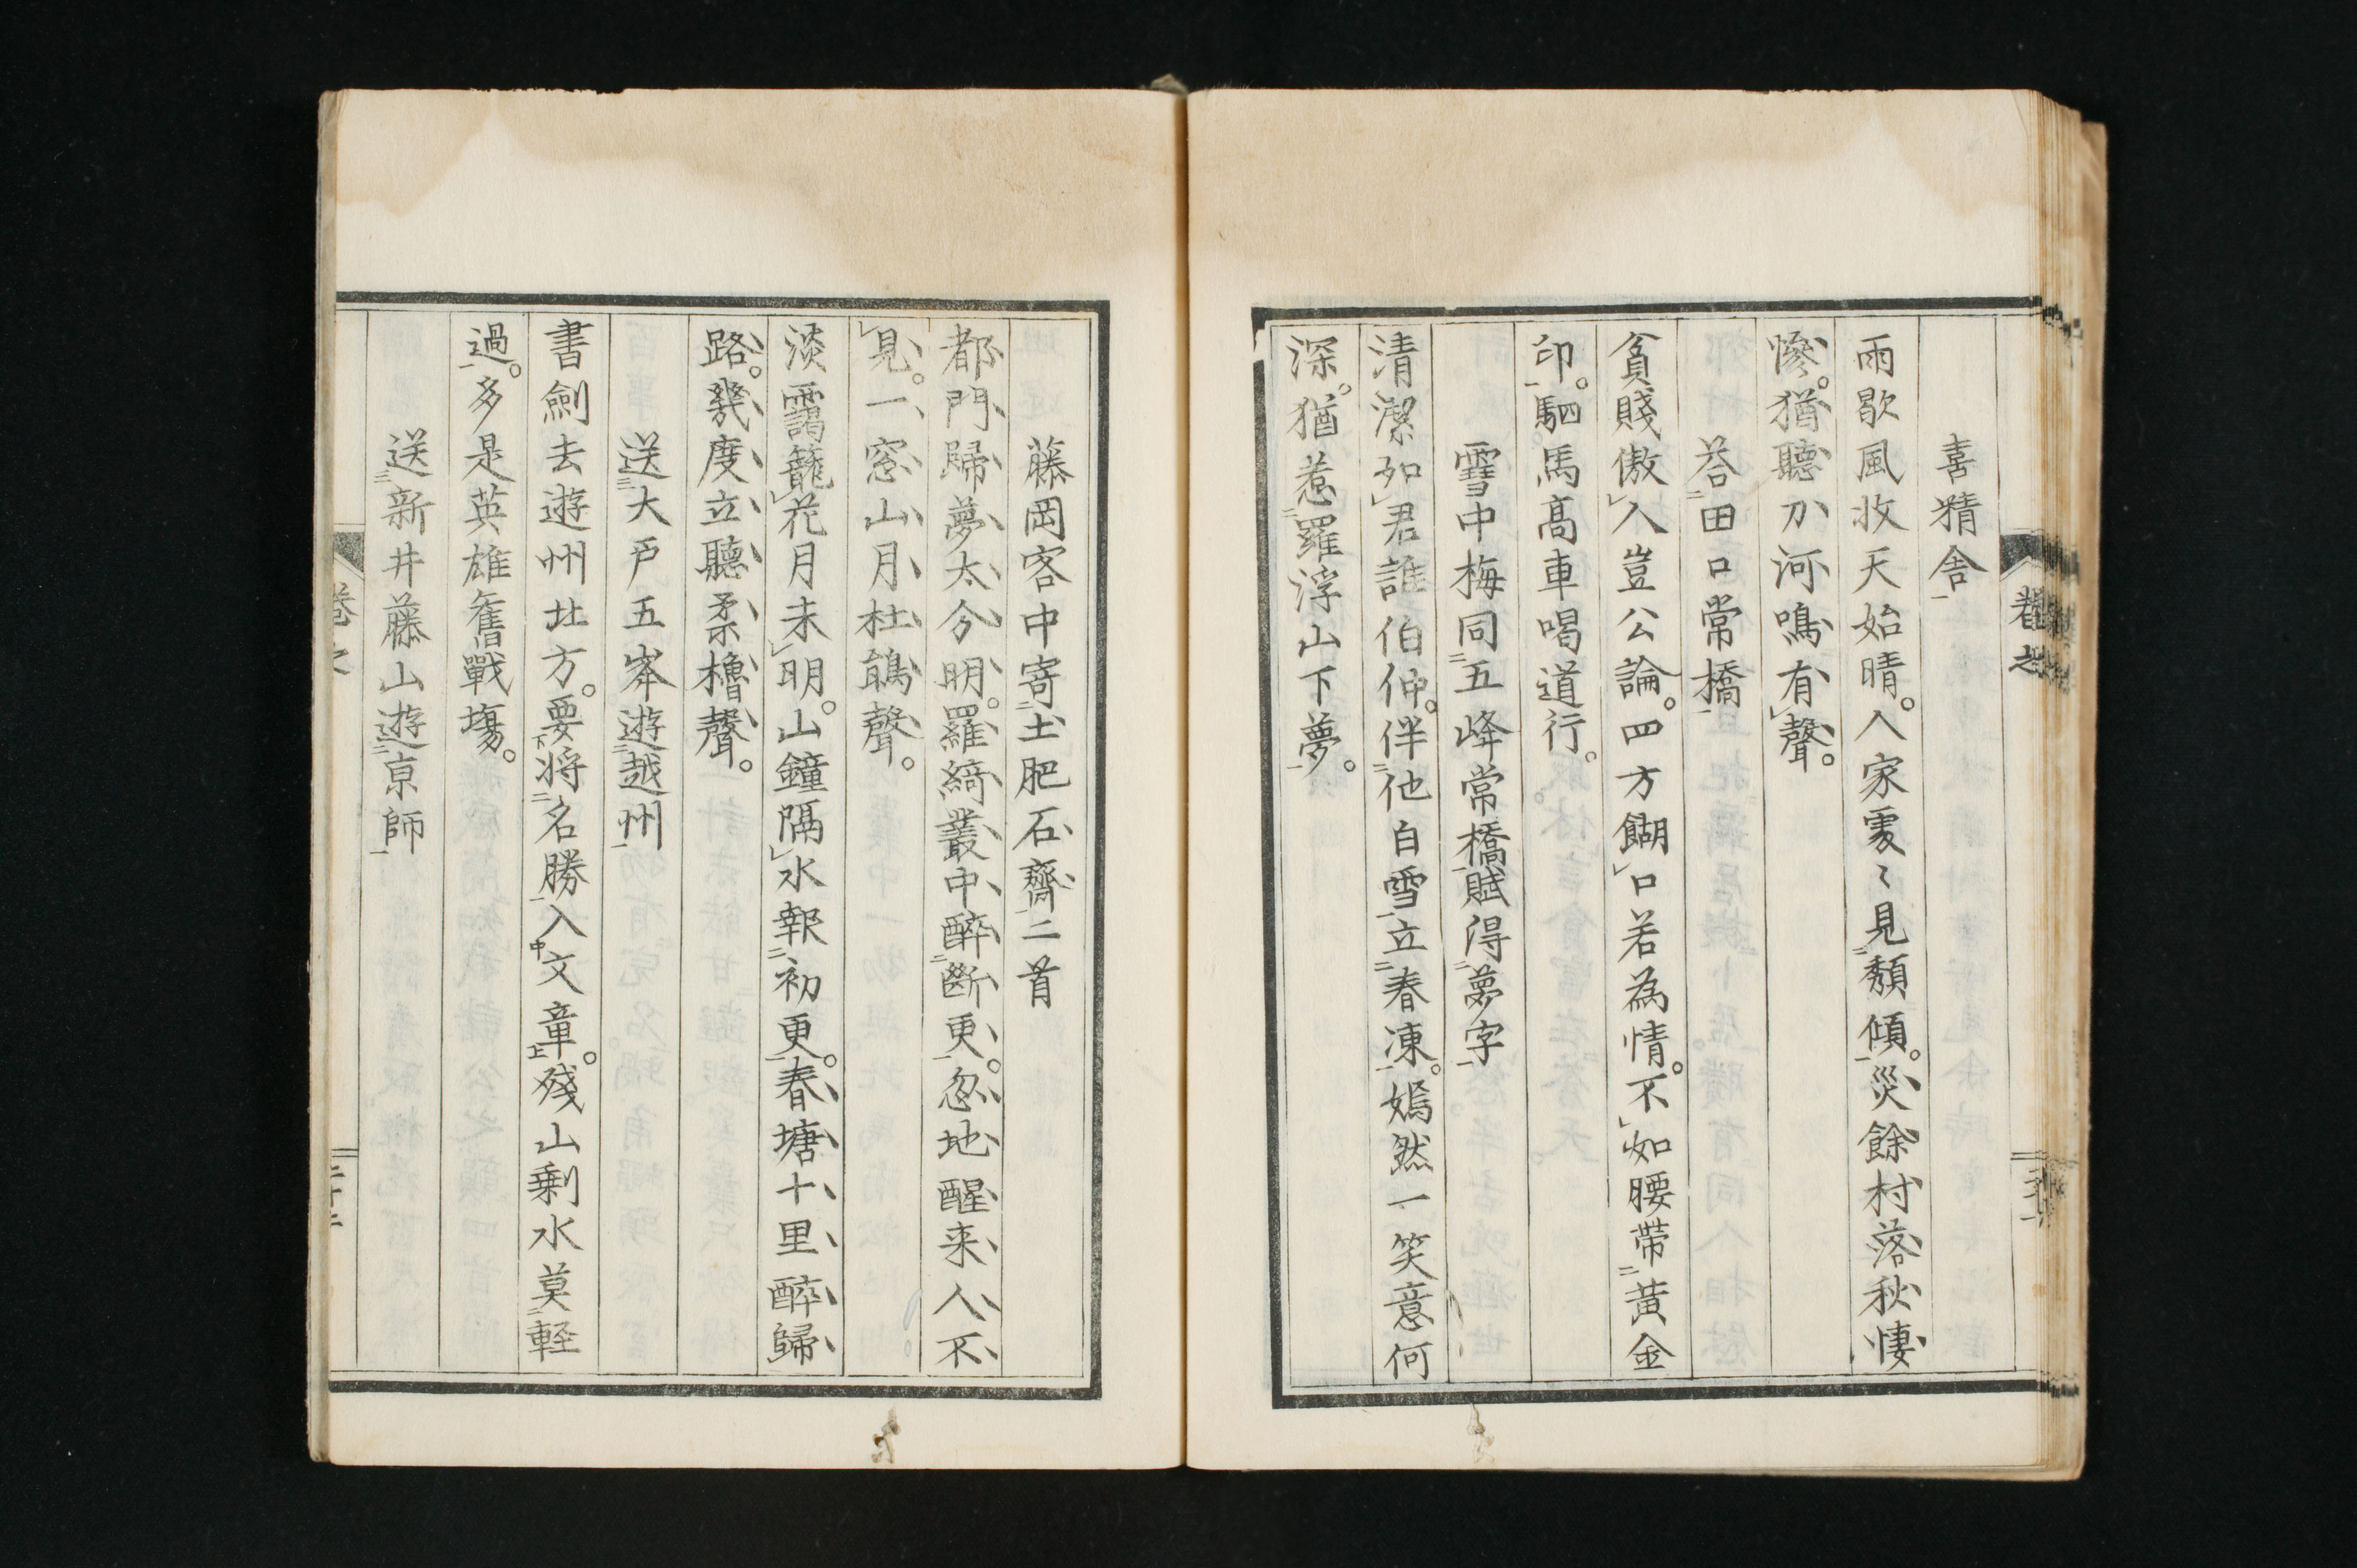 喜精舎
雨歇風收天始晴。人家處〻見頽傾。災餘村落秋悽
慘。猶聽刀河鳴有聲。
荅田口常橋
貧賤傲人豈公論。四方餬口若為情。不如腰帶黃金
印。駟馬高車喝道行。
雪中梅同五峰常橋賦得夢字
清潔如君誰伯仲。伴他白雪立春凍。嫣然一笑意何
深。猶惹羅浮山下夢。
藤岡客中寄土肥石齋二首
都門歸夢太分明。羅綺叢中醉斷更。忽地醒来人不
見。一窓山月杜鵑聲。
淡靄籠花月未明。山鐘隔水報初更。春塘十里醉歸
路。幾度立聽柔櫓聲。
送大戸五峯遊越州
書劍去遊州北方。要將名勝入文章。殘山剩水莫輕
過。多是英雄舊戰塲。
送新井藤山遊京師